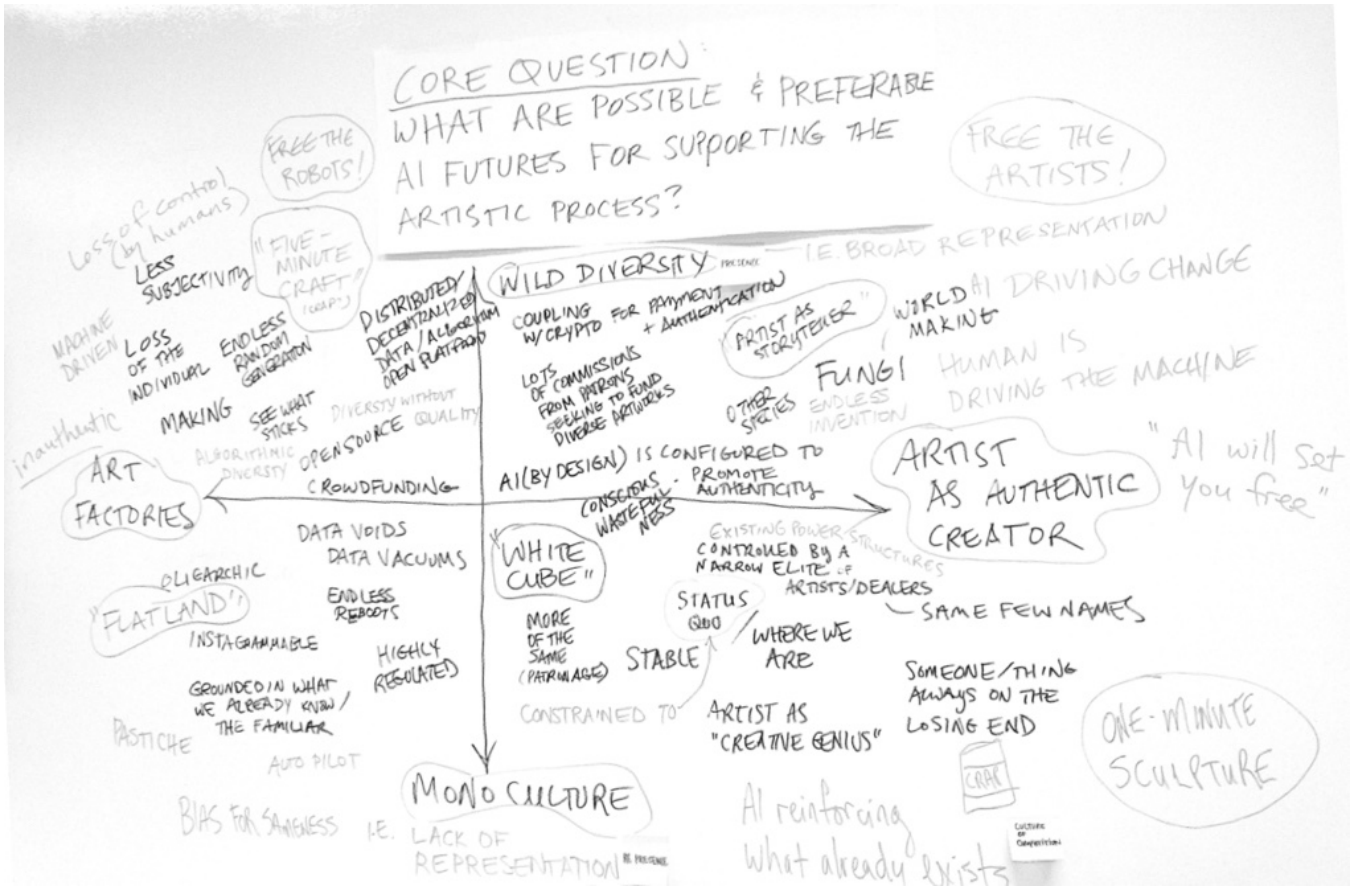 CORE QUESTION:
WHAT ARE POSSIBLE & PREFERABLE
AI FUTURES FOR SUPPORTING THE
ARTISTIC PROCESS?
FREE THE
ROBOTS!
FREE THE
ARTISTS!
Loss of control
(by humans)
LESS
SUBJECTIVITY
"FIVE-
MINUTE
CRAFT"
(CRAP)
MACHINE
DRIVEN
LOSS
OF THE
INDIVIDUAL
ENDLESS
RANDOM
GENERATION
DISTRIBUTED/
DECENTRALIZED
DATA/ALGORITHM
OPEN PLATFORM
MAKING
SEE WHAT
STICKS
DIVERSTY WITHOUT
QUALITY
inauthentic
ALGORITHMIC
DIVERSTY
OPENSOURCE
CROWDFUNDING
ART
FACTORIES
WILD DIVERSITY
PRESENCE
I.E. BROAD REPRESENTATION
COUPLING
W/CRYPTO FOR PAYMENT
+ AUTHENTICATION
LOTS
OF COMMISSIONS
FROM PATRONS
SEEKING TO FUND
DIVERSE ARTWORKS
"ARTIST AS
STORYTELLER"
WORLD
MAKING
AI DRIVING CHANGE
FUNGI
OTHER
SPECIES
ENDLESS
INVENTION
HUMAN IS
DRIVING THE MACHINE
AI (BY DESIGN) IS CONFIGURED TO
PROMOTE
AUTHENTICITY
CONSCIOUS
WASTEFUL-
NESS
ARTIST
AS AUTHENTIC
CREATOR
"AI will set
you free"
DATA VOIDS
DATA VACUUMS
OLIGARCHIC
"FLATLAND"
ENDLESS
REBOOTS
INSTAGRAMMABLE
HIGHLY
REGULATED
GROUNDED IN WHAT
WE ALREADY KNOW/
THE FAMILIAR
PASTICHE
AUTO PILOT
BIAS FOR SAMENESS
"WHITE
CUBE"
MORE
OF THE
SAME
(PATRONAGE)
EXISTING POWER STRUCTURES
CONTROLLED BY A
NARROW ELITE OF
ARTISTS/DEALERS
SAME FEW NAMES
STATUS
QUO
STABLE
/WHERE WE
ARE
CONSTRAINED TO
ARTIST AS
"CREATIVE GENIUS"
SOMEONE/THING
ALWAYS ON THE
LOSING END
CRAP
ONE-MINUTE
SCULPTURE
MONOCULTURE
I.E. LACK OF
REPRESENTATION
AI reinforcing
what already exists
CULTURE
OF